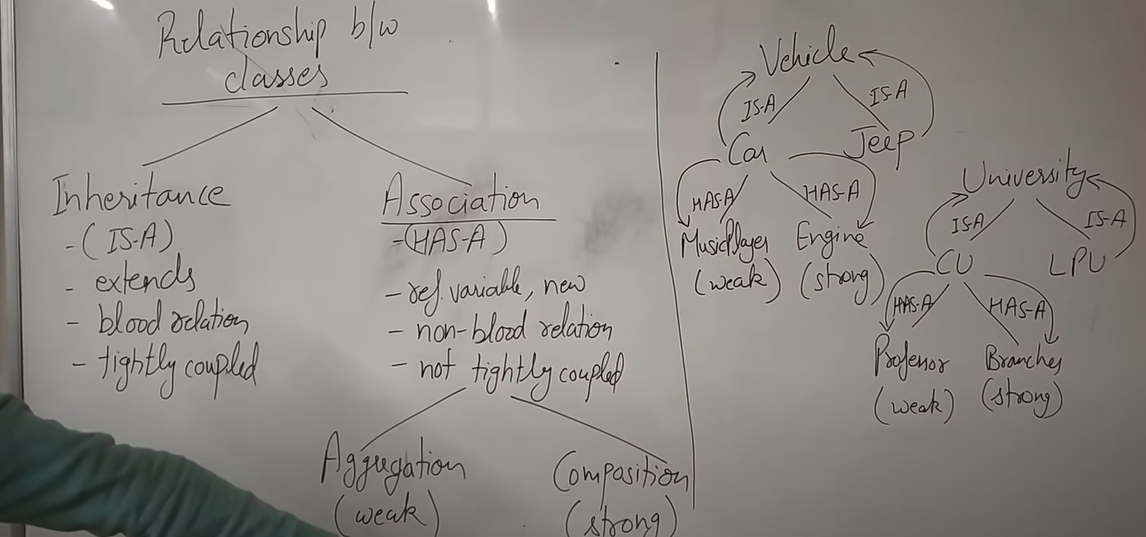 Relationship b/w
classes
Inheritance
- (IS-A)
- extends
- blood relation
- tightly coupled
Association
- (HAS-A)
- ref. variable, new
- non-blood relation
- not tightly coupled
Aggregation
(weak)
Composition
(strong)
Vehicle
IS-A
IS-A
Car
Jeep
HAS-A
HAS-A
MusicPlayer
(weak)
Engine
(strong)
University
IS-A
IS-A
CU
LPU
HAS-A
HAS-A
Professor
(weak)
Branches
(strong)